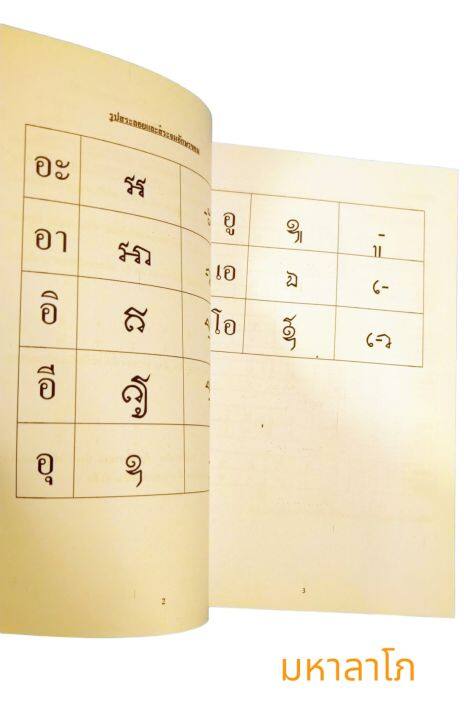 รูปสระลอยและสระจมอักษรขอม
อะ អ
อา អា
อิ ឥ
อี ឦ
อุ ឧ
2
อู ឩ
เอ ឯ เ-
โอ ឱ
3
มหาลาโภ